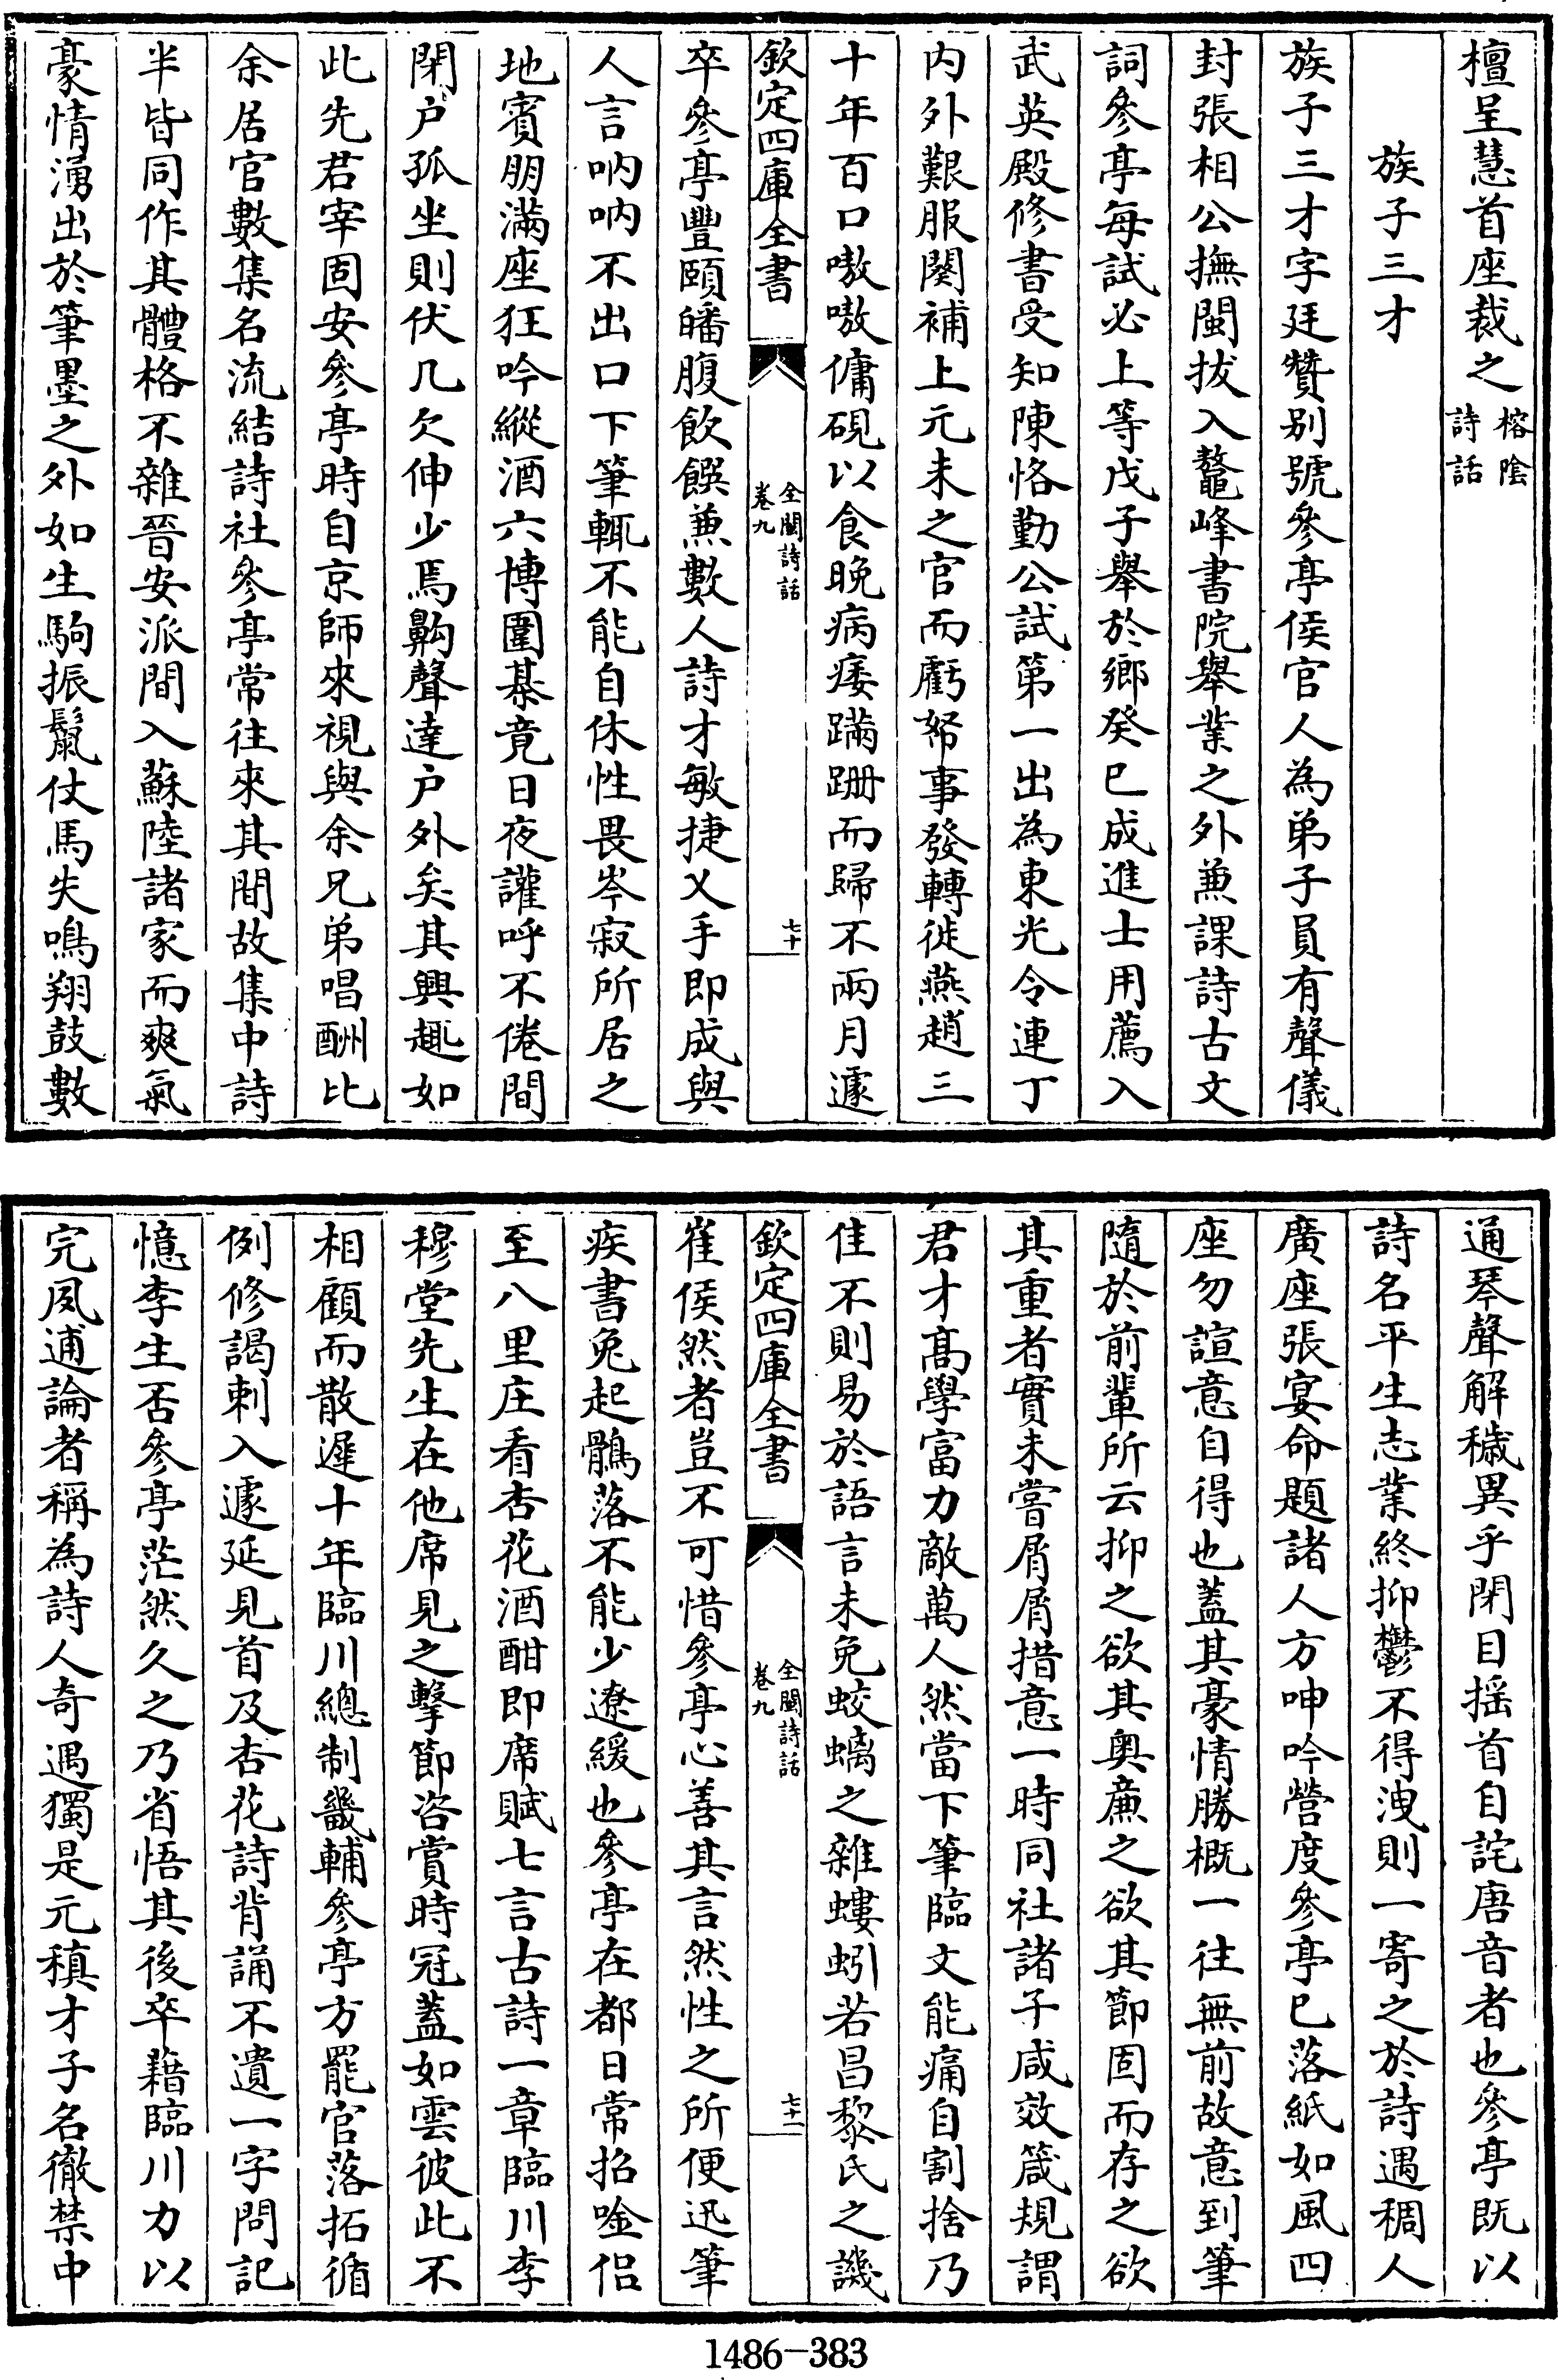 檀呈慧首座裁之榕陰詩話
族子三才
族子三才字廷贊别號參亭侯官人為弟子員有聲儀
封張相公撫閩拔入鼇峰書院舉業之外兼課詩古文
詞參亭每試必上等戊子舉於鄉癸巳成進士用薦入
武英殿修書受知陳恪勤公試第一出為東光令連丁
内外艱服闋補上元未之官而虧帑事發轉徙燕趙三
十年百口嗷嗷傭硯以食晚病痿蹣跚而歸不兩月遽
欽定四庫全書
全閩詩話
卷九
七十
卒參亭豐頤皤腹飲饌兼數人詩才敏捷乂手即成與
人言吶吶不出口下筆輒不能自休性畏岑寂所居之
地賓朋滿座狂吟縱酒六博圍棊竟日夜讙呼不倦間
閉户孤坐則伏几欠伸少焉齁聲達户外矣其興趣如
此先君宰固安參亭時自京師來視與余兄弟唱酬比
余居官數集名流結詩社參亭常往來其間故集中詩
半皆同作其體格不雜晉安派間入蘇陸諸家而爽氣
豪情湧出於筆墨之外如生駒振鬛仗馬失鳴翔鼓數
通琴聲解穢異乎閉目摇首自詫唐音者也參亭既以
詩名平生志業終抑鬱不得洩則一寄之於詩遇稠人
廣座張宴命題諸人方呻吟營度參亭已落紙如風四
座勿諠意自得也蓋其豪情勝概一往無前故意到筆
隨於前輩所云抑之欲其奥亷之欲其節固而存之欲
其重者實未嘗屑屑措意一時同社諸子咸效箴規謂
君才髙學富力敵萬人然當下筆臨文能痛自割捨乃
佳不則易於語言未免蛟螭之雜螻蚓若昌黎氏之譏
欽定四庫全書
全閩詩話
卷九
七十一
崔侯然者豈不可惜參亭心善其言然性之所便迅筆
疾書兔起鶻落不能少遼緩也參亭在都日常招唫侣
至八里庄看杏花酒酣即席賦七言古詩一章臨川李
穆堂先生在他席見之擊節咨賞時冠蓋如雲彼此不
相顧而散遲十年臨川總制畿輔參亭方罷官落拓循
例修謁刺入遽延見首及杏花詩背誦不遺一字問記
憶李生否參亭茫然久之乃省悟其後卒藉臨川力以
完夙逋論者稱為詩人奇遇獨是元稹才子名徹禁中
1486-383